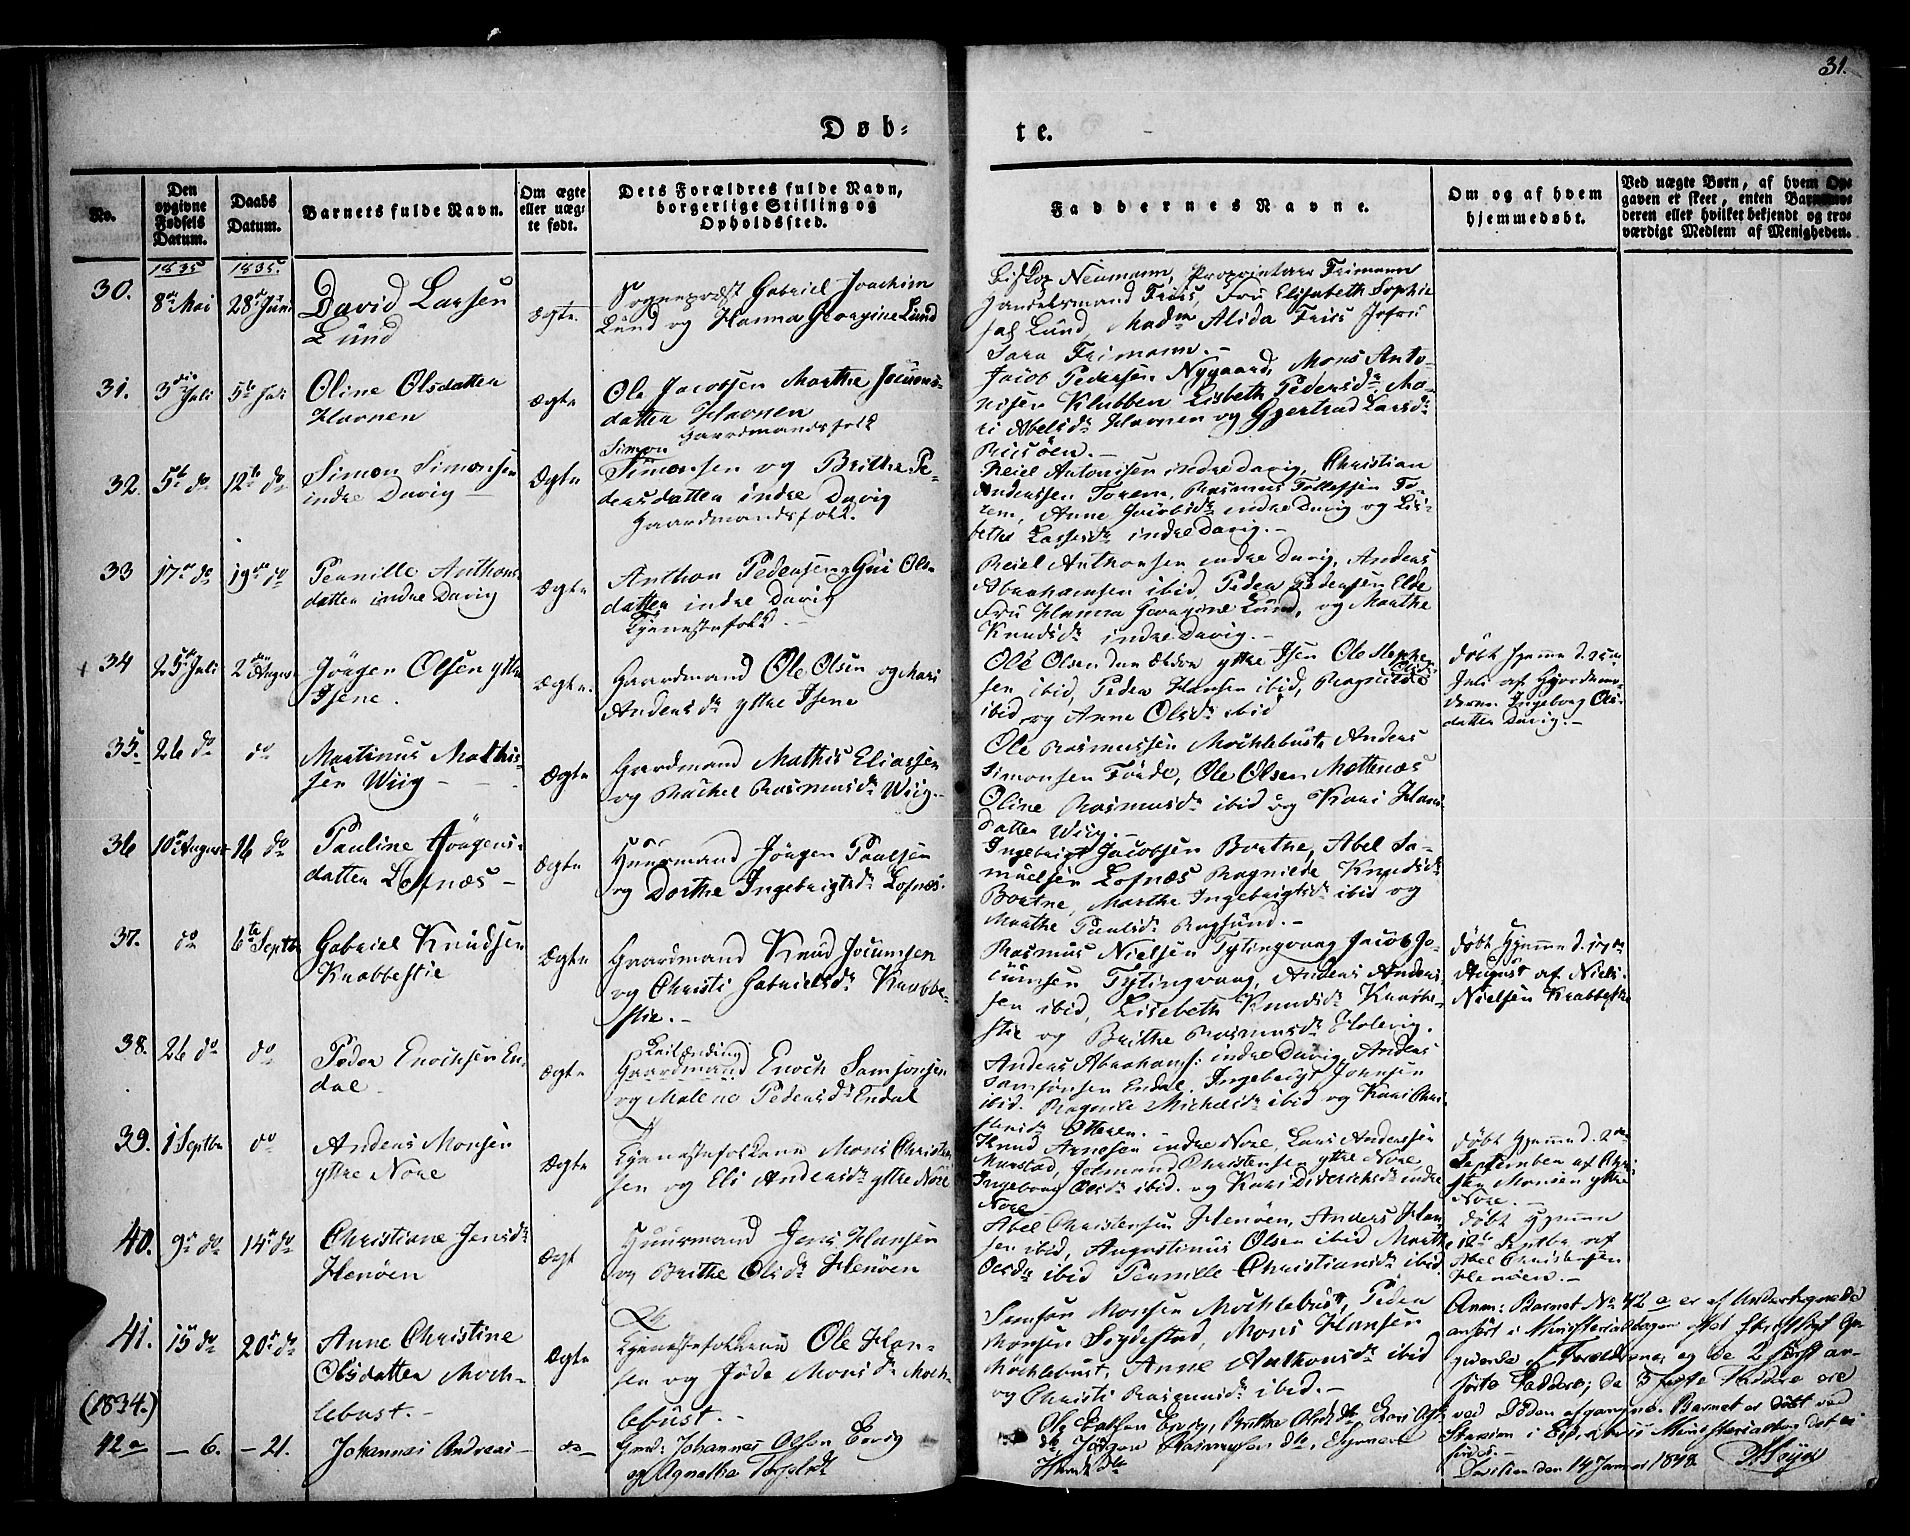 31.
Døb-
te.
No.
Den opgivne Fødsels Datum.
Daabs Datum.
Barnets fulde Navn.
Om ægte eller uægte født.
Dets Forældres fulde Navn, borgerlige Stilling og Opholdssted.
Faddernes Navne.
Om og af hvem hjemmedøbt.
Ved uægte Børn, af hvem Opgaven er skeet, enten Barnemoderen eller hvilket bekjendt og troværdigt Medlem af Menigheden.
1835 1835.
30. 8de Mai 28de Juni David Larsen
Lund
ægte
Sognepræst Gabriel Joachim
Lund og Hanna Georgine Lund
Biskop Neumann, Proprietair Frimann
Handelsmand Friis, Fru Elisabeth Sophie
Lund, Madm Alida Friis Jofru
Sara Frimann.-
31. 3die Juli 5te Juli Oline Olsdatter
Havnen
ægte
Ole Jacobsen Marthe Jocums-
datter Havnen
Gaardmandsfolk
Jacob Pedersen Nygaard, Mons Anto-
nisen Klubben Lisbeth Pedersdr Ma-
ri Abelsdr Havnen og Gjertrud Larsdr
Risøen.-
32. 5te do 12te do Simon Simonsen
indre Davig
Ægte
Simon
Simonsen og Brithe Pe-
dersdatter indre Davig
Gaardmandsfolk.
Reiel Antonisen indre Davig, Christian
Anderssen Torem, Rasmus Tollefsen To-
rem, Anne Jacobsdr indre Davig og Lis-
bethe Lassesdr indre Davig.-
33 17de do 19de do Pernille Anthons-
datter indre Davig
ægte
Anthon Pedersen og Guri Ols-
datter indre Davig
Tjenestefolk.-
Reiel Anthonsen indre Davig, Anders
Abrahamsen ibid, Peder Pedersen Elde
Fru Hanna Georgine Lund, og Marthe
Knudsdr indre Davig.-
34 25de Juli 2den August Jörgen Olsen yttre
Isene.
ægte.
Gaardmand Ole Olsen og Mari
Andersdr yttre Isene
Ole Olsen den ældre yttre Isen Ole Stephen-
sen ibid, Peder Hansen ibid, Ragnilde Olsdr
ibid og Anne Olsdr ibid
döbt hjemme d. 25de
Juli af Gjordemo-
deren Ingeborg Ols-
datter Davig.-
35. 26 do do Martinus Mathis-
sen Wiig -
Ægte
Gaardmand Mathis Eliassen
og Rachel Rasmusdr Wiig.
Ole Rasmussen Mochlebust, Anders
Simonsen Förde, Ole Olsen Mettenæs
Oline Rasmusdr ibid og Kari Hans-
datter Wiig.-
36 10de August 16 do Pauline Jörgens-
datter Lofnæs -
Ægte
Huusmand Jörgen Paulsen
og Dorthe Ingebrigtsdr Lofnæs.
Ingebrigt Jacobsen Bortne, Abel Sa-
muelsen Lofnæs Ragnilde Knudsdr
Bortne, Marthe Ingebrigtsdr ibid og
Marthe Paulsdr Rugsund.-
37. do 6te Septbr Gabriel Knudsen
Krabbestie
Ægte
Gaardmand Knud Jocumsen
og Christi Gabrielsdr Krabbe-
stie.-
Rasmus Nielsen Tytingvaag Jacob Jo-
cumsen Tytingvaag, Anders Anders-
sen ibid, Lisebeth Knudsdr Krabbe-
stie og Brithe Rasmusdr Holevig.
döbt hjemme d. 17de
August af Niels
Nielsen Krabbestie
38. 26 do do Peder Enochsen En-
dal -
ægte
Leilænding
Gaardmand Enoch Samsonsen
og Malene Pedersdr Endal
Anders Abrahams: indre Davig, Anders
Samsonsen Endal, Ingebrigt Johnsen
ibid. Ragnile Michelsdr ibid og Kari Chri-
stensdr Otteren.-
39. 1 Septbr do Anders Monsen
yttre Nore
Ægte
Tjenestefolkene Mons Christen-
sen og Eli Andersdr yttre Nore
Knud Arnesen indre Nore, Lars Anderssen
Maurstad, Jetmund Christensen yttre Nore,
Ingeborg Olsdr ibid. og Kari Diderichsdr indre
Nore
döbt hjemme d. 2den
September af Chri-
sten Monsen yttre
Nore.-
40. 9de do 14de do Christiane Jensdr
Henöen
Ægt
Huusmand Jens Hansen
og Brithe Olsdr Henöen
Abel Christensen Henöen, Anders Han-
sen ibid, Augustinus Olsen ibid Marthe
Olsdr ibid Pernille Christiansdr ibid.
döbt hjemme
12te Septbr af
Abel Christensen
Henöen.-
41. 15 do 20de do Anne Christine
Olsdatter Moch-
lebust.-
Ægte
Tjenestefolkene Ole Han-
sen og Jöde Monsdr Moch-
lebust.-
Samson Monsen Mochlebust, Peder
Monsen Leydestad, Mons Hansen
Mochlebust, Anne Anthonsdr ibid
og Christi Rasmusdr ibid.-
(1834.)
42a - 6. - 21. Johannes Andreas - do -
Gmd: Johannes Olsen Ervig
og Agnethe
Ole Ervig, Brithe Olsdr
do, Jörgen Rasmussen do,
do
Anm: Barnet No 42 a er af Undertegnede
anfört i Ministerialbogen efter
givende af Forældrene, og de 2 först an-
förte Faddere; da 3 sidste Faddere ere
ved Döden afgangne. Barnet er døbt ved
Ministerialbog det ei
Davigen den 14 Januar 1848.